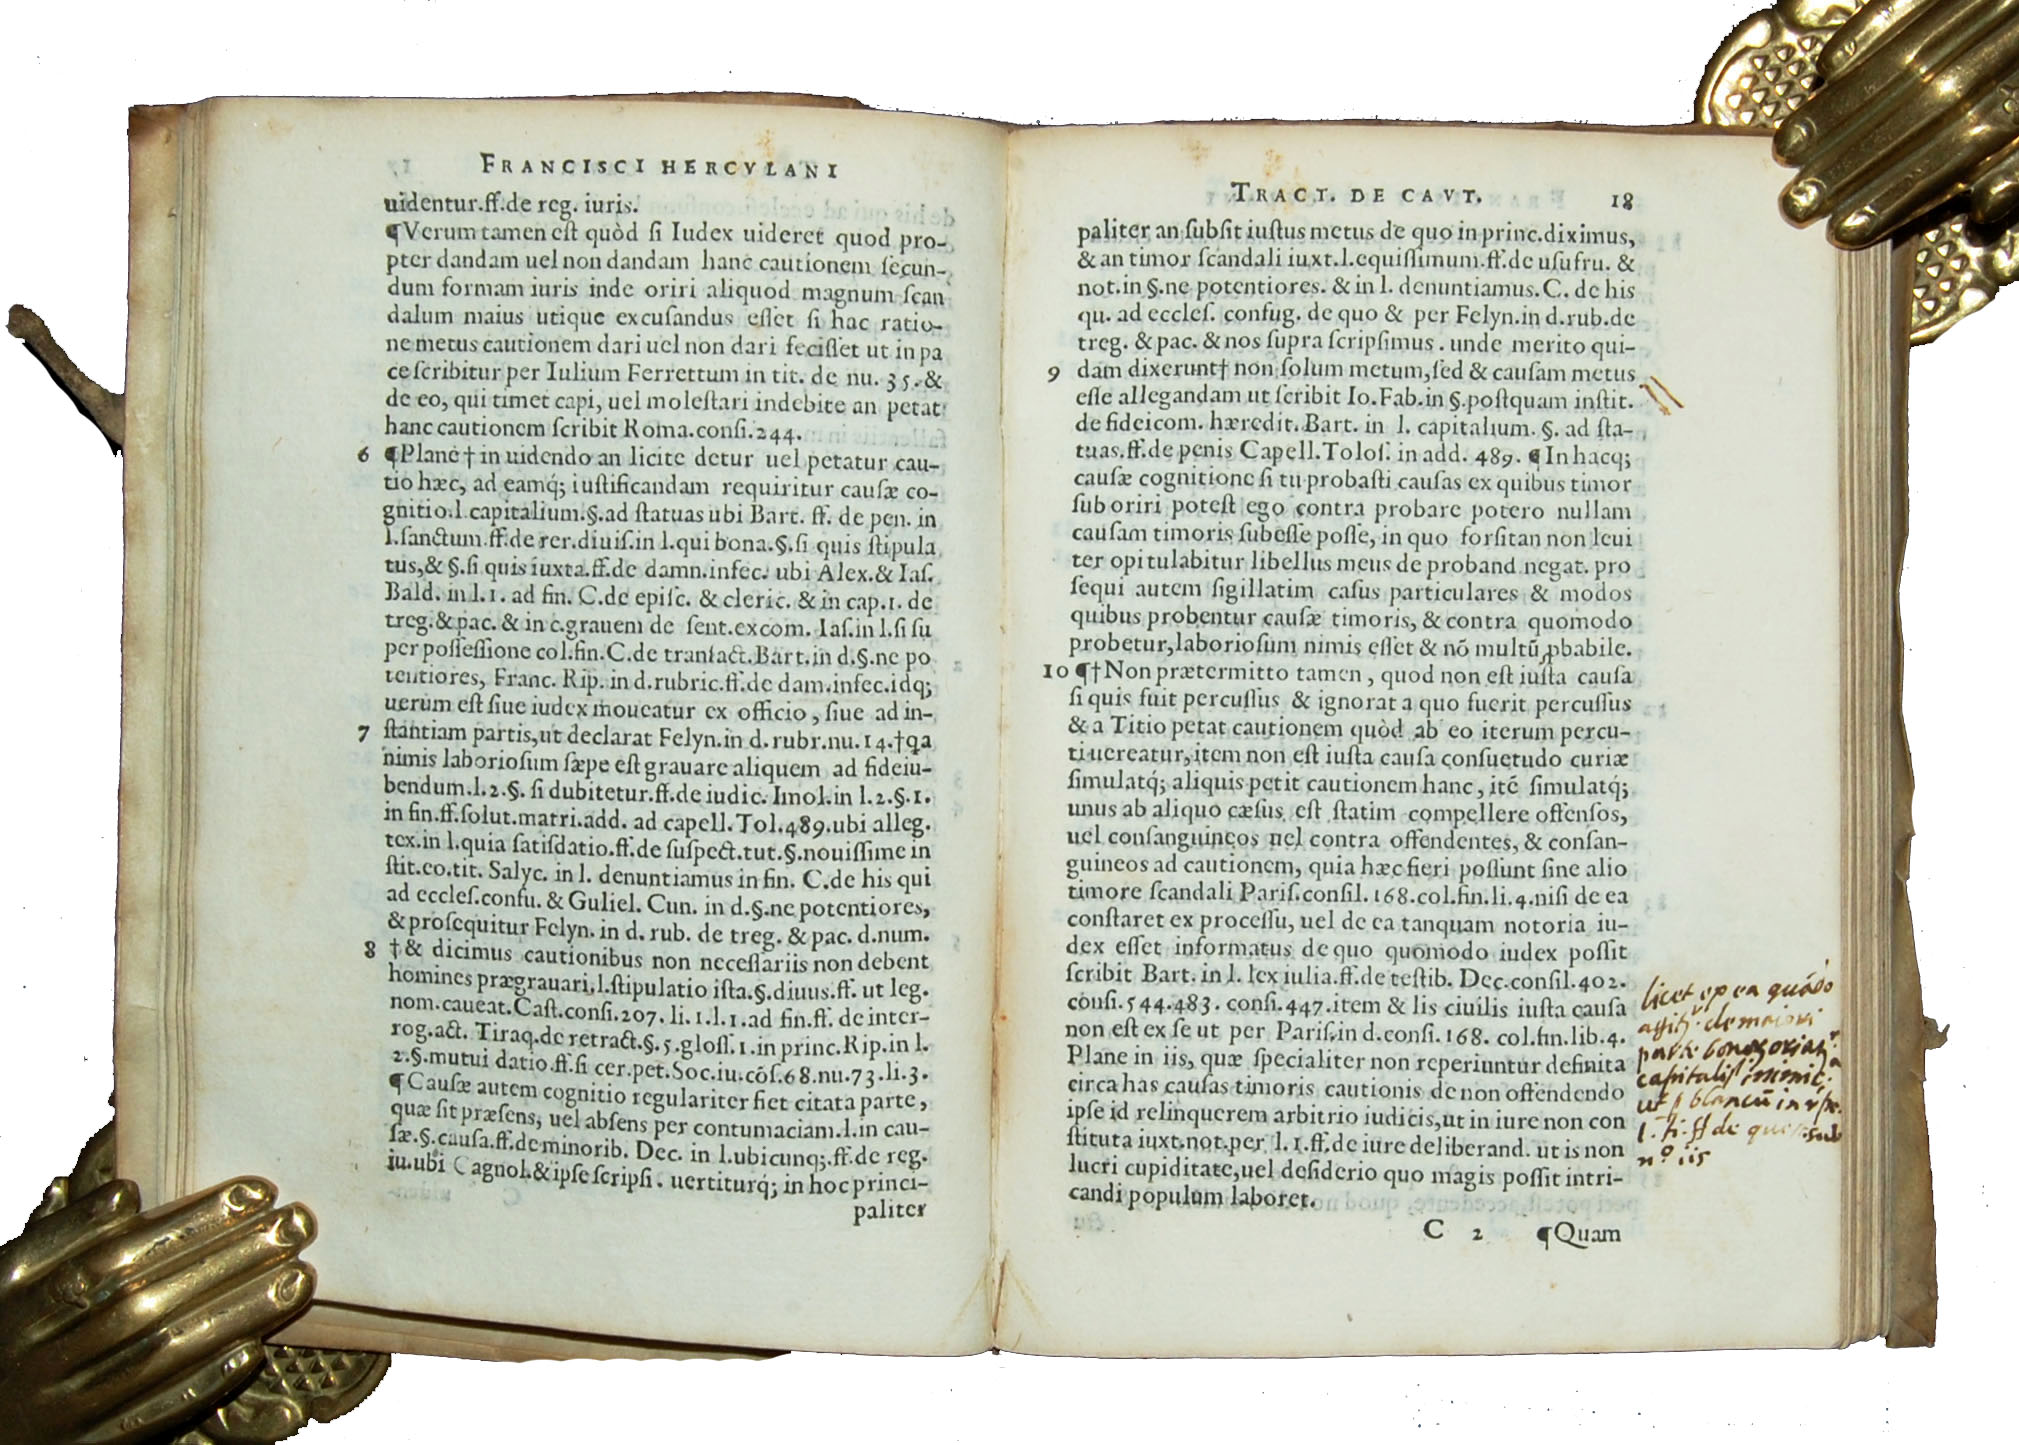 FRANCISCI HERCVLANI
uidentur.ff.de reg. iuris.
¶Verum tamen est quòd si Iudex uideret quod pro-
pter dandam uel non dandam hanc cautionem secun-
dum formam iuris inde oriri aliquod magnum scan
dalum maius utique excusandus esset si hac ratio-
ne metus cautionem dari uel non dari fecisset ut in pa
ce scribitur per Iulium Ferrettum in tit. de nu. 35.&
de eo, qui timet capi, uel molestari indebite an petat
hanc cautionem scribit Roma.consi.244.
6 ¶Plane † in uidendo an licite detur uel petatur cau-
tio hæc, ad eamq́; iustificandam requiritur causæ co-
gnitio.l.capitalium.§.ad statuas ubi Bart. ff. de pen. in
l.sanctum.ff.de rer.diuis.in l.qui bona.§.si quis stipula
tus,& §.si quis iuxta.ff.de damn.infec. ubi Alex.& Ias.
Bald. in l.1. ad fin. C.de episc. & cleric. & in cap.1. de
treg.& pac. & in c.grauem de sent.excom. Ias.in l.si su
per possessione col.fin.C.de transact.Bart.in d.§.ne po
tentiores, Franc. Rip. in d.rubric.ff.de dam.infec.idq;
uerum est siue iudex moueatur ex officio, siue ad in-
7 stantiam partis,ut declarat Felyn.in d.rubr.nu.14.†qa
nimis laboriosum sæpe est grauare aliquem ad fideiu-
bendum.l.2.§. si dubitetur.ff.de iudic. Imol.in l.2.§.1.
in fin.ff.solut.matri.add. ad capell.Tol.489.ubi alleg.
tex.in l.quia satisdatio.ff.de suspect.tut.§.nouissime in
stit.eo.tit. Salyc. in l. denuntiamus in fin. C.de his qui
ad eccles.confu. & Guliel. Cun. in d.§.ne potentiores,
& prosequitur Felyn. in d. rub. de treg. & pac. d.num.
8 †& dicimus cautionibus non necessariis non debent
homines prægrauari.l.stipulatio ista.§.diuus.ff. ut leg.
nom.caueat.Cast.consi.207. li.1.l.1.ad fin.ff. de inter-
rog.act. Tiraq.de retract.§.5.gloss.1.in princ.Rip.in l.
2.§.mutui datio.ff.si cer.pet.Soc.iu.cōs.68.nu.73.li.3.
¶Causæ autem cognitio regulariter fiet citata parte,
quæ sit præsens, uel absens per contumaciam.l.in cau-
sæ.§.causa.ff.de minorib. Dec. in l.ubicunq;.ff.de reg.
iu.ubi Cagnol.& ipse scripsi. uertiturq́; in hoc princi-
paliter
TRACT. DE CAVT. 18
paliter an subsit iustus metus de quo in princ.diximus,
& an timor scandali iuxt.l.equissimum.ff.de usufru. &
not.in §.ne potentiores. & in l. denuntiamus. C. de his
qu. ad eccles. confug. de quo & per Felyn.in d.rub.de
treg. & pac. & nos supra scripsimus. unde merito qui-
9 dam dixerunt† non solum metum,sed & causam metus
esse allegandam ut scribit Io.Fab.in §.postquam instit.
de fideicom. hæredit. Bart. in l. capitalium. §. ad sta-
tuas.ff.de penis Capell.Tolos. in add. 489. ¶In hacq;
causæ cognitione si tu probasti causas ex quibus timor
suboriri potest ego contra probare potero nullam
causam timoris subesse posse, in quo forsitan non leui
ter opitulabitur libellus meus de proband negat. pro
sequi autem sigillatim casus particulares & modos
quibus probentur causæ timoris, & contra quomodo
probetur, laboriosum nimis esset & nō multū ꝓbabile.
10 ¶†Non prætermitto tamen, quod non est iusta causa
si quis fuit percussus & ignorat a quo fuerit percussus
& a Titio petat cautionem quòd ab eo iterum percu-
ti uereatur, item non est iusta causa consuetudo curiæ
simulatq́; aliquis petit cautionem hanc, itē simulatq́;
unus ab aliquo cæsus est statim compellere offensos,
uel consanguineos uel contra offendentes, & consan-
guineos ad cautionem, quia hæc fieri possunt sine alio
timore scandali Paris.consil.168.col.fin.li.4.nisi de ea
constaret ex processu, uel de ea tanquam notoria iu-
dex esset informatus de quo quomodo iudex possit
scribit Bart. in l. lex iulia.ff.de testib. Dec.consil.402.
consi.544.483. consi.447.item & lis ciuilis iusta causa
non est ex se ut per Paris.in d.consi.168. col.fin.lib.4.
Plane in iis, quæ specialiter non reperiuntur definita
circa has causas timoris cautionis de non offendendo
ipse id relinquerem arbitrio iudicis,ut in iure non con
stituta iuxt.not.per l.1.ff.de iure deliberand. ut is non
lucri cupiditate,uel desiderio quo magis possit intri-
candi populum laboret.
C 2 ¶Quam
licet
de maiori
parte
capitalis
n.º iis